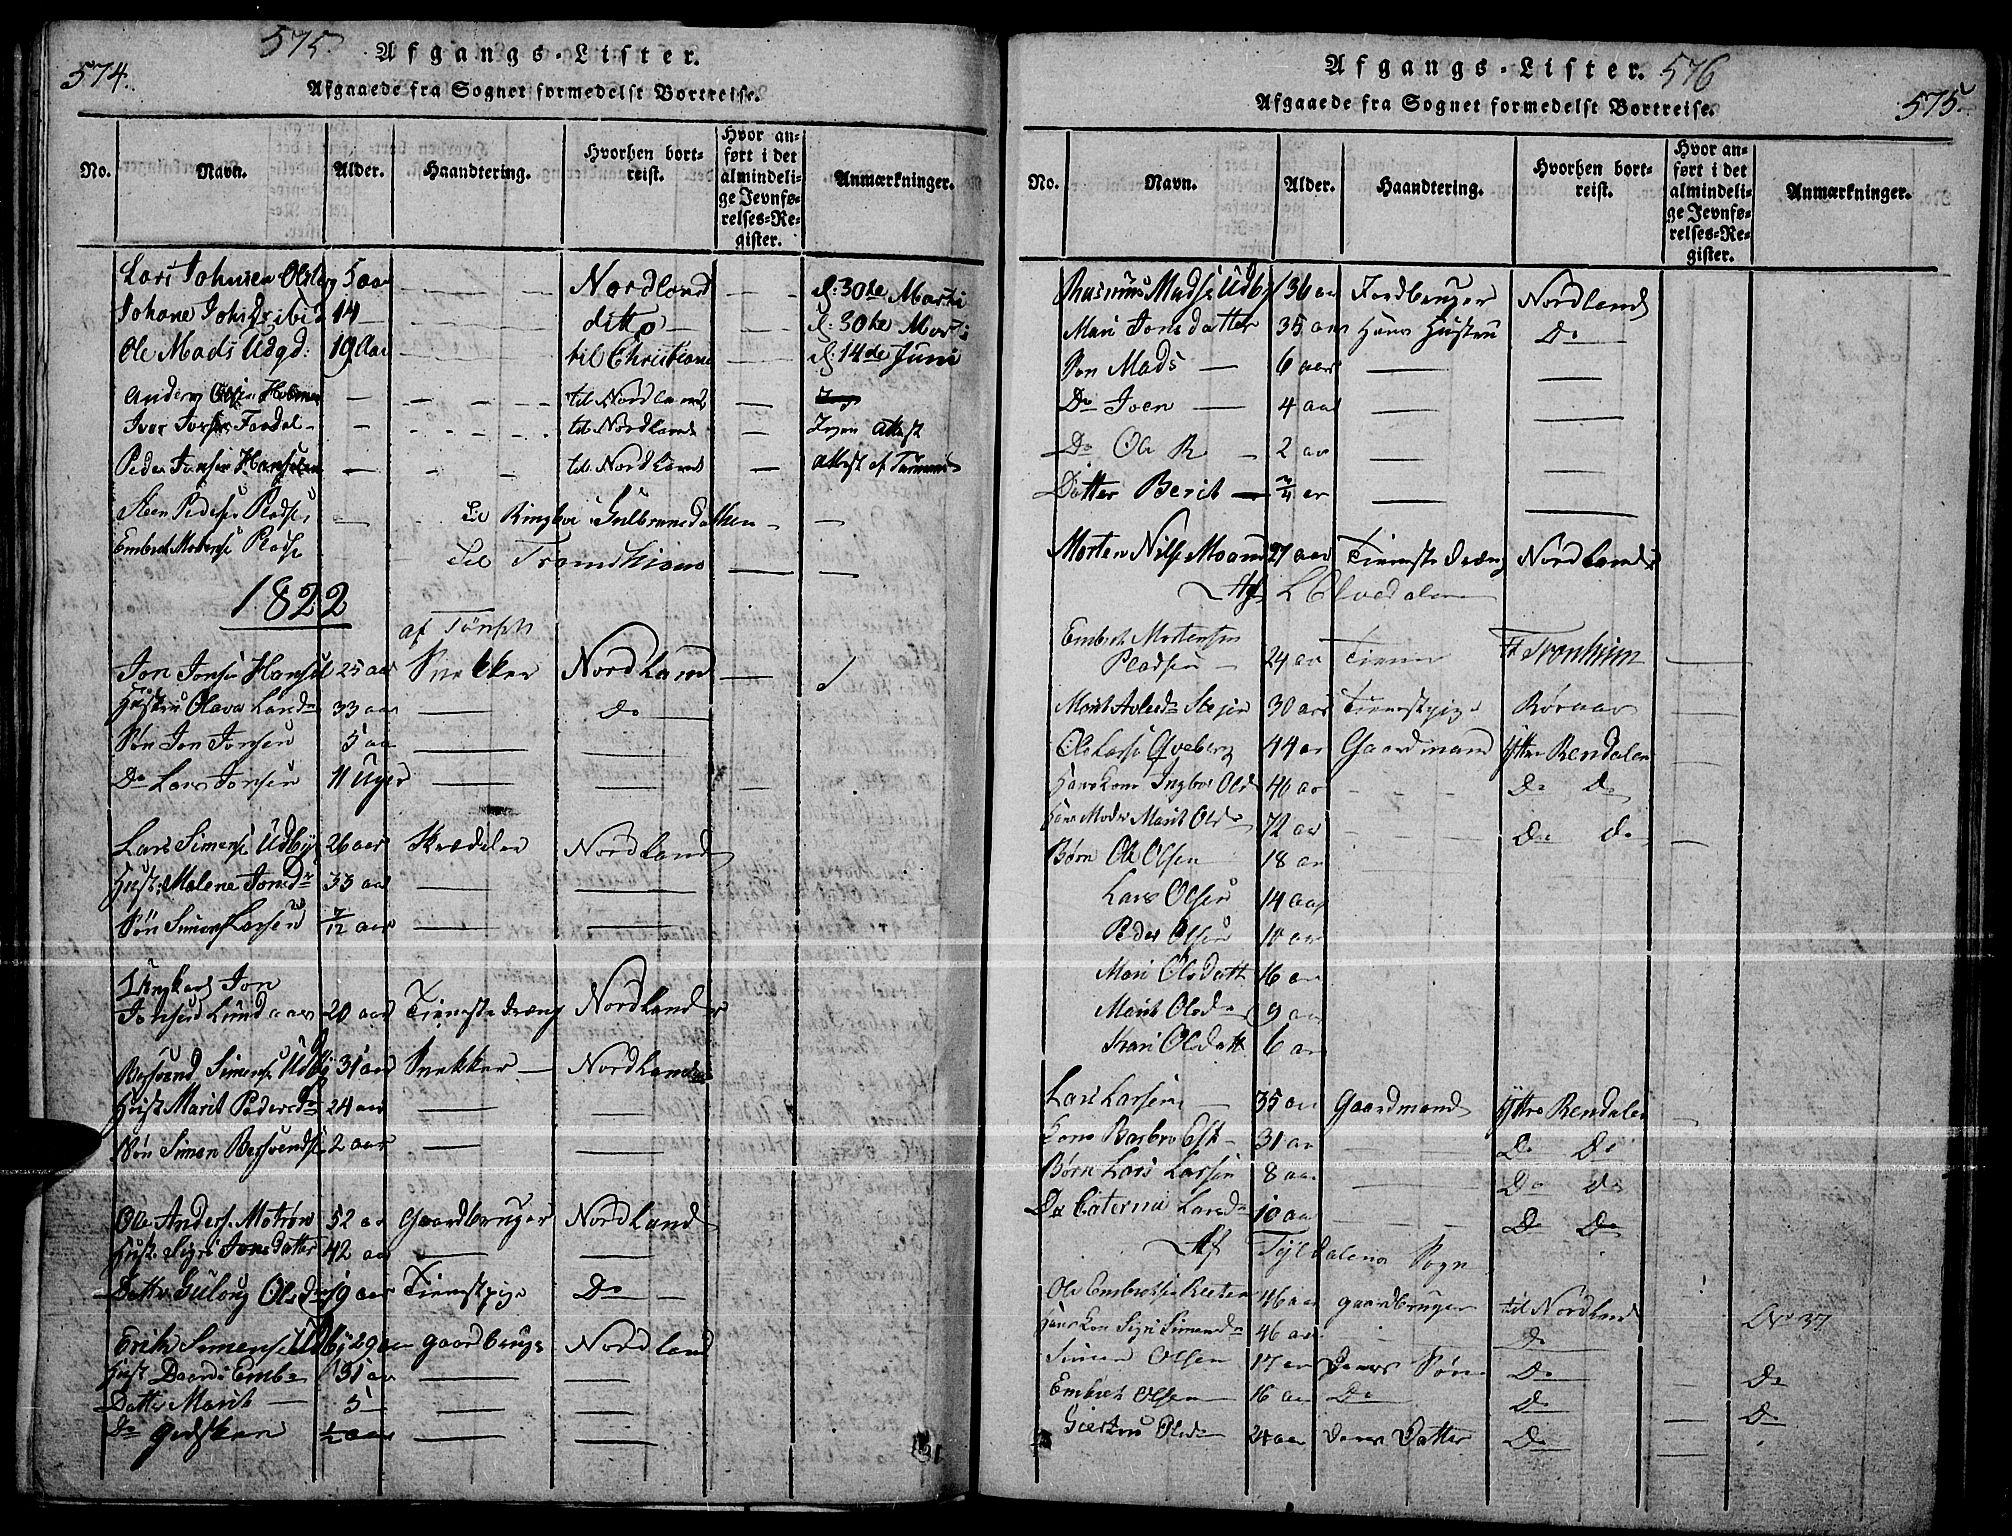 575.
574.
Afgangs-Lister.
Afgaaede fra Sognet formedelst Bortreise.
No. Navn. Alder. Haandtering. Hvorhen bortreist. Hvor anført i det almindelige Jevnførelses-Register. Anmærkninger.
Lars Johnsen 5 aar Nordland d. 30te Marti
Johane 14 ditto d. 30te Marti
Ole Mads Udgd: 19 aar til Christiania d. 14de Juni
Anders Holmen til Nordland
Iver Iversen til Nordland Ingen attest
Peder Jonsen Hansulen til Nordland attest af
Steen Pedersen Pladsen til Ringboe i Gulbransdallen
Embret Mortensen Pladsen til Trondhiem
1822
af Tønseth
Jon Jonsen 25 aar Snekker Nordland
Hustru Olava Larsdr 33 aar Do
Søn Jon Jonsen 5 aar
Do Lars Jonsen 11 Uger
Lars Simensen Udby 26 aar Skrædder Nordland
Hust: Malene Jonsdr 33 aar
Søn Simon Larsen 7/12 aar
Ungkarl Jon
Jonsen 20 aar Tieneste dreng Nordland
Bersvend Simensen Udby 31 aar Snekker Nordland
Hust Marit Pedersdr 24 aar
Søn Simen Bersvendsen 2 aar
Ole Anders. Motrøen 52 aar Gaardbruger Nordland
Hust. Sigri Jonsdatter 42 aar
Datter Gulloug Olsdr 19 aar Tienestpige Do
Erik Simensen Udby 29 aar gaardbruger Nordland
Hust Dordi Emb 31 aar
Datter Marit 5
Do Gedsken 1/2 aar
Afgangs-Lister. 576
575.
Afgaaede fra Sognet formedelst Bortreise.
No. Navn. Alder. Haandtering. Hvorhen bortreist. Hvor anført i det almindelige Jevnførelses-Register. Anmærkninger.
Rasmus Madsen Udby 36 aar Jordbruger Nordland
Mari Jonsdatter 35 aar Hans Hustru Do
Søn Mads 6 aar
Do Joen 4 aar
Do Ole R 2 aar
Datter Berit 3/4 aar
Morten Nilsen Moan 27 aar Tieneste dreng Nordland
Af L Elvedalen
Embret Mortensen
Pladsen 24 aar Tiener Tronhiem
Marit 30 aar Tienestpige Røraas
Ole Larsen Qveberg 44 aar Gaardmand Yttre Rendalen
Hans Kone Ingbor Olsd 40 aar Do Do
Hans Moder Marit Olsdr 72 aar Do Do
Børn Ole Olsen 18 aar
Lars Olsen 14 aar
Peder Olsen 10 aar
Mari Olsdatt 16 aar
Marit Olsdr 9 aar
Kari Olsdatt 6 aar
Lars Larsen 35 aar Gaardmand Yttre Rendalen
Kone Barbro 31 aar Do Do
Børn Lars Larsen 8 aar Do Do
Do Caterina Larsdr 10 aar Do Do
Af Tyldalens Sogn
Ole Embretsen 46 aar gaardbruger til Nordland No 37
Hans Kon Sigri Simensdr 46 aar Do
Simen Olsen 17 aar Deres Søn Do Do
Embret Olsen 16 aar Do Do Do
Giertru Olsdr 24 aar Deres Datter Do